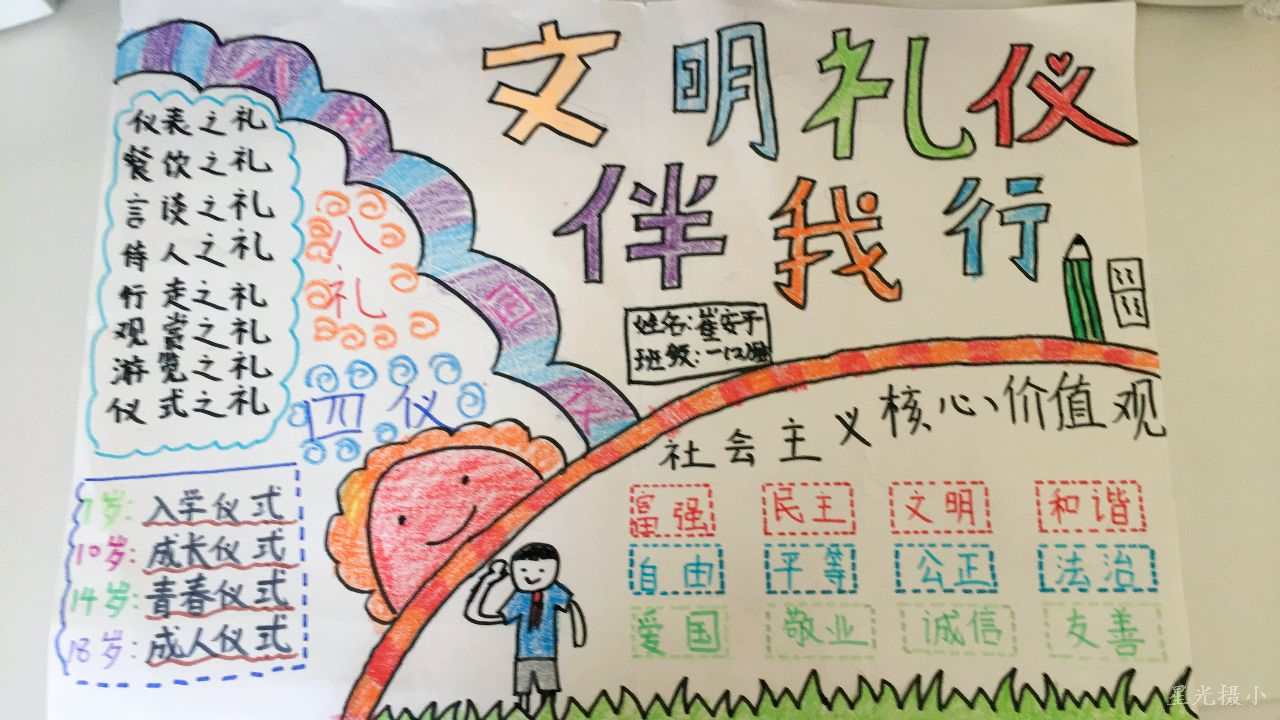 文明礼仪
伴我行
姓名:崔安平
仪表之礼
餐饮之礼
言谈之礼
侍人之礼
行走之礼
观赏之礼
游览之礼
仪式之礼
八
礼
四仪
7岁:入学仪式
10岁:成长仪式
14岁:青春仪式
18岁:成人仪式
社会主义核心价值观
富强 民主 文明 和谐
自由 平等 公正 法治
爱国 敬业 诚信 友善
星光摄小